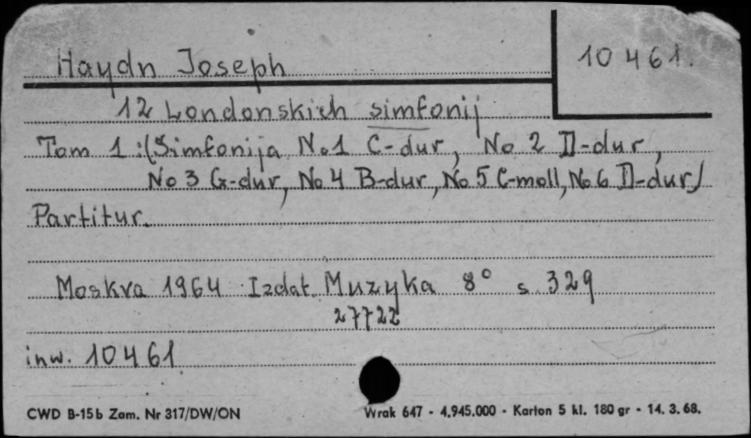 Haydn Joseph
10 461.
12 Londonskich simfonij
Tom 1:(Simfonija No1 C-dur, No 2 D-dur,
No 3 G-dur, No 4 B-dur, No 5 C-moll, No 6 D-dur)
Partitur.
Moskva 1964 Izdat. Muzyka 8° s. 329
27722
inw. 10461
CWD B-15b Zam. Nr 317/DW/ON
Wrak 647 - 4.945.000 - Karton 5 kl. 180 gr - 14. 3. 68.